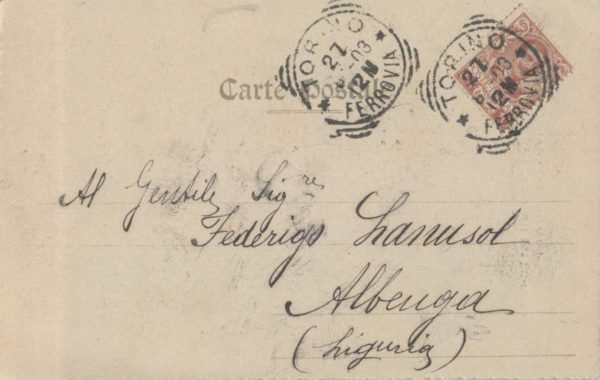 TORINO
27
-03
12M
FERROVIA
TORINO
27
-03
12M
FERROVIA
Carte Postale
Al Gentile Sigre
Federigo Lanusol
Albenga
(Liguria)